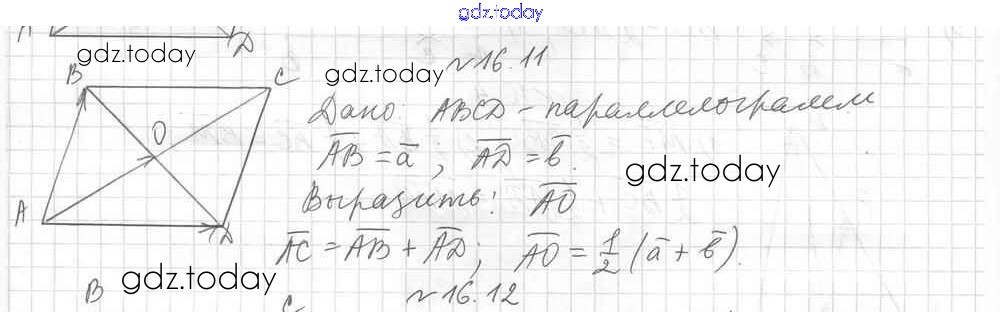 gdz.today
A D
gdz.today
№16.11
B C
gdz.today
Дано ABCD - параллелограмм
O
AB = a, AD = b.
gdz.today
Выразить: AO
A D
AC = AB + AD; AO = 1/2 (a + b).
gdz.today
B C
№16.12